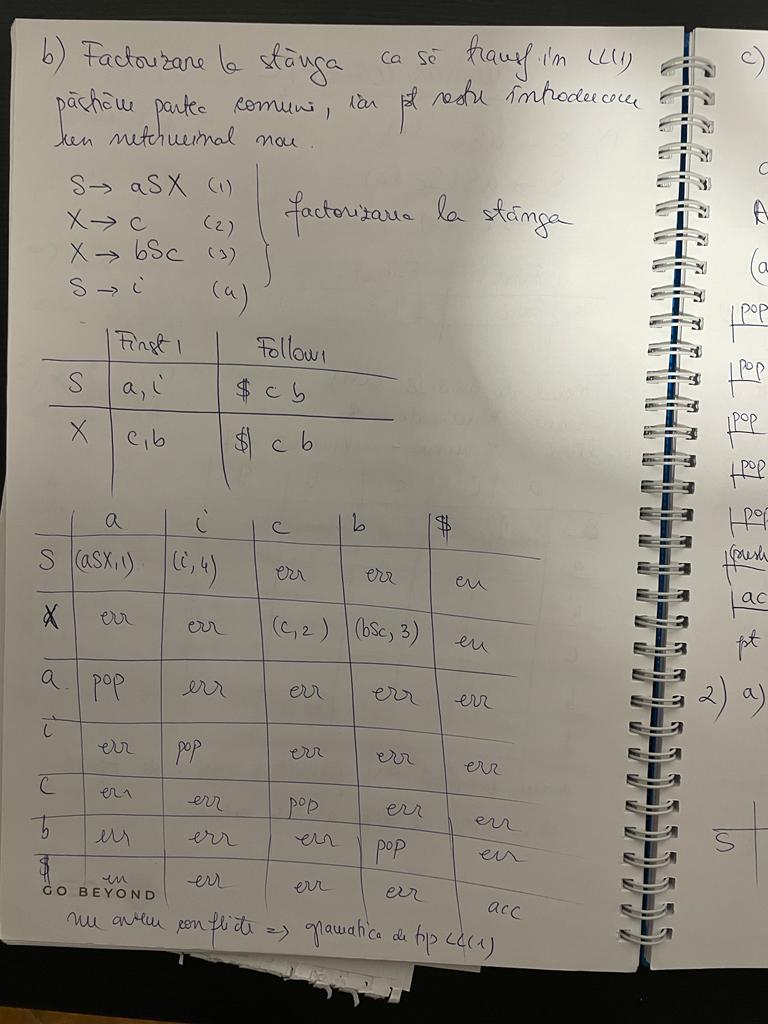 b) Factorizare la stânga ca să transf. în LL(1)
păstrăm partea comună, iar pt restu introducem
un neterminal nou.
S → aSX (1)
X → c (2)
X → bSc (3)
S → i (4)
factorizarea la stânga
First1 Follow1
S a, i $ c b
X c, b $ c b
a i c b $
S (aSX,1) (i,4) err err err
X err err (c,2) (bSc,3) err
a. pop err err err err
i err pop err err err
c err err pop err err
b err err err pop err
$ err err err err acc
GO BEYOND
nu avem conflicte => gramatica de tip LL(1)
c)
(a
pop
pop
pop
pop
pop
push
ac
pt
2) a)
S